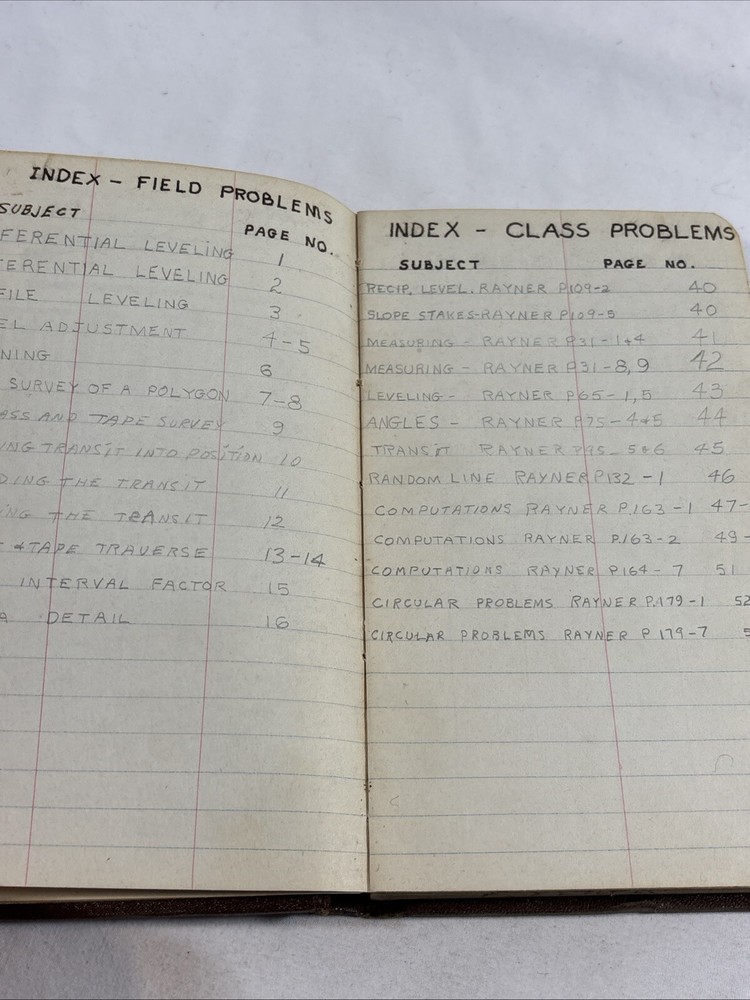 INDEX - FIELD PROBLEMS
SUBJECT PAGE NO.
FERENTIAL LEVELING 1
ERENTIAL LEVELING 2
FILE LEVELING 3
EL ADJUSTMENT 4-5
NING 6
SURVEY OF A POLYGON 7-8
ASS AND TAPE SURVEY 9
ING TRANSIT INTO POSITION 10
DING THE TRANSIT 11
ING THE TRANSIT 12
& TAPE TRAVERSE 13-14
INTERVAL FACTOR 15
A DETAIL 16
INDEX - CLASS PROBLEMS
SUBJECT PAGE NO.
RECIP. LEVEL. RAYNER P109-2 40
SLOPE STAKES-RAYNER P109-5 40
MEASURING - RAYNER P31-1&4 41
MEASURING - RAYNER P31-8,9 42
LEVELING - RAYNER P65-1,5 43
ANGLES - RAYNER P75-4&5 44
TRANSIT RAYNER P95-5&6 45
RANDOM LINE RAYNER P132-1 46
COMPUTATIONS RAYNER P.163-1 47-
COMPUTATIONS RAYNER P.163-2 49-
COMPUTATIONS RAYNER P164-7 51
CIRCULAR PROBLEMS RAYNER P.179-1 52
CIRCULAR PROBLEMS RAYNER P 179-7 5